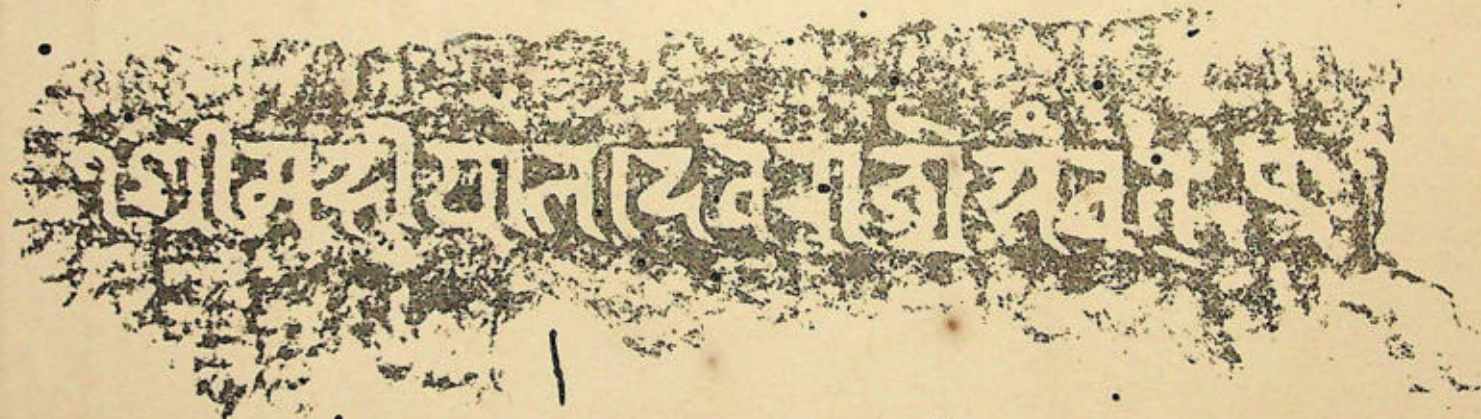 श्रीमहीपालदेवराज्ये संवत्